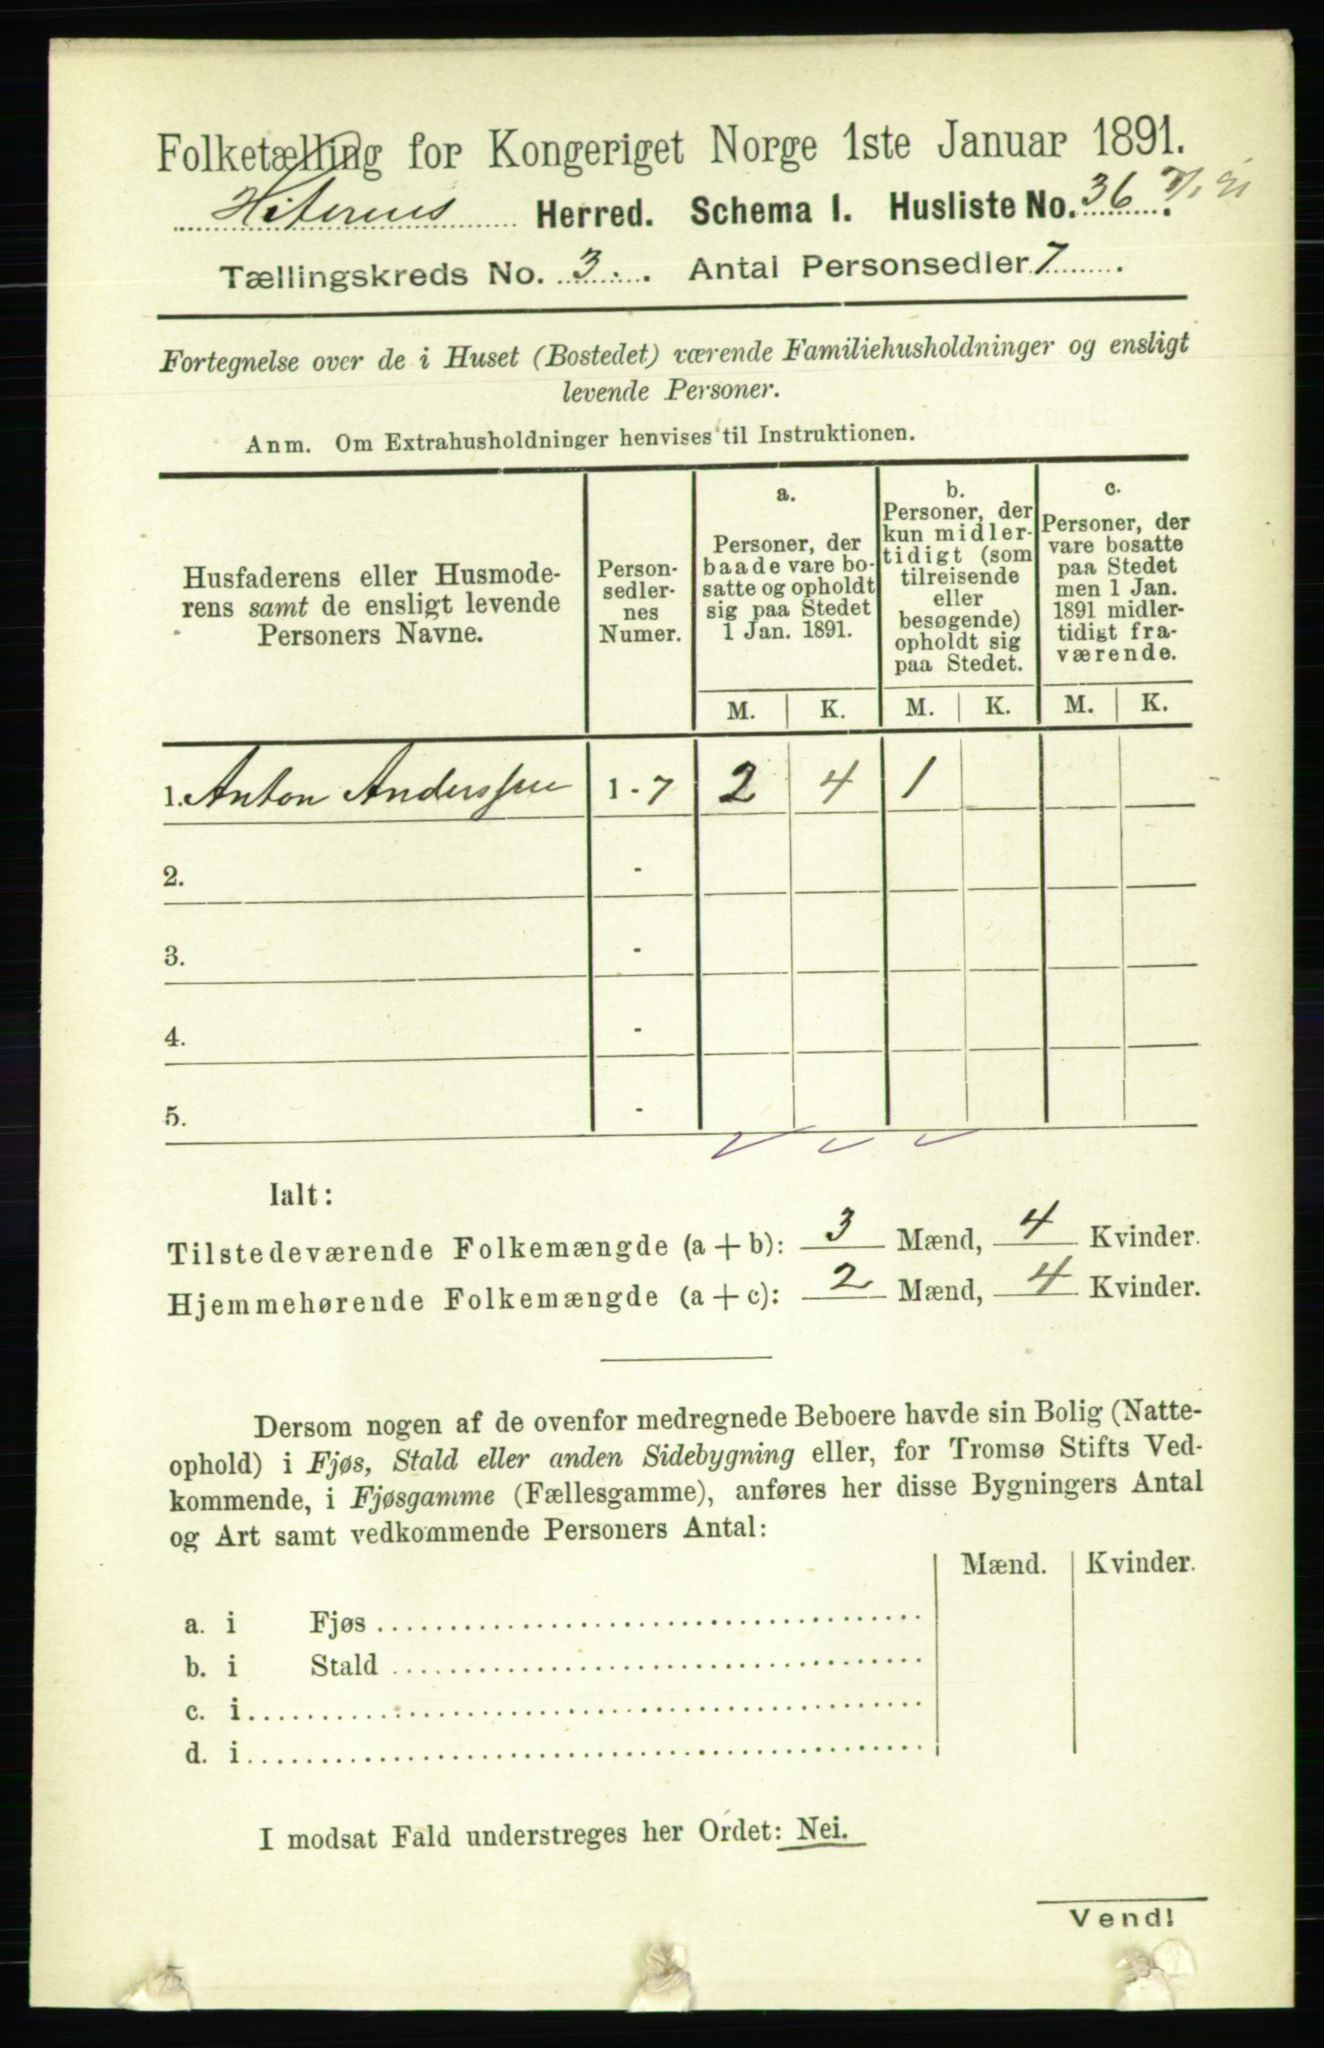 Folketælling for Kongeriget Norge 1ste Januar 1891.
Hiterens Herred. Schema I. Husliste No. 36.
Tællingskreds No. 3. Antal Personsedler 7.
Fortegnelse over de i Huset (Bostedet) værende Familiehusholdninger og ensligt
levende Personer.
Anm. Om Extrahusholdninger henvises til Instruktionen.
Husfaderens eller Husmode-
rens samt de ensligt levende
Personers Navne.
Person-
sedler-
nes
Numer.
a.
Personer, der
baade vare bo-
satte og opholdt
sig paa Stedet
1 Jan. 1891.
b.
Personer, der
kun midler-
tidigt (som
tilreisende
eller
besøgende)
opholdt sig
paa Stedet.
c.
Personer, der
vare bosatte
paa Stedet
men 1 Jan.
1891 midler-
tidigt fra-
værende.
M. K. M. K. M. K.
1. Anton Anderssen 1 - 7 2 4 1
2. -
3. -
4. -
5. -
Ialt:
Tilstedeværende Folkemængde (a + b): 3 Mænd, 4 Kvinder.
Hjemmehørende Folkemængde (a + c): 2 Mænd, 4 Kvinder.
Dersom nogen af de ovenfor medregnede Beboere havde sin Bolig (Natte-
ophold) i Fjøs, Stald eller anden Sidebygning eller, for Tromsø Stifts Ved-
kommende, i Fjøsgamme (Fællesgamme), anføres her disse Bygningers Antal
og Art samt vedkommende Personers Antal:
Mænd. Kvinder.
a. i Fjøs
b. i Stald
c. i
d. i
I modsat Fald understreges her Ordet: Nei.
Vend!